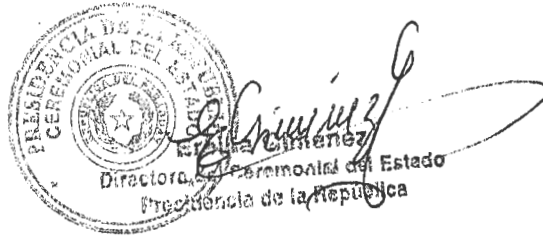 PRESIDENCIA DE LA REPUBLICA
CEREMONIAL DEL ESTADO
Giménez
Directora del Ceremonial del Estado
Presidencia de la República